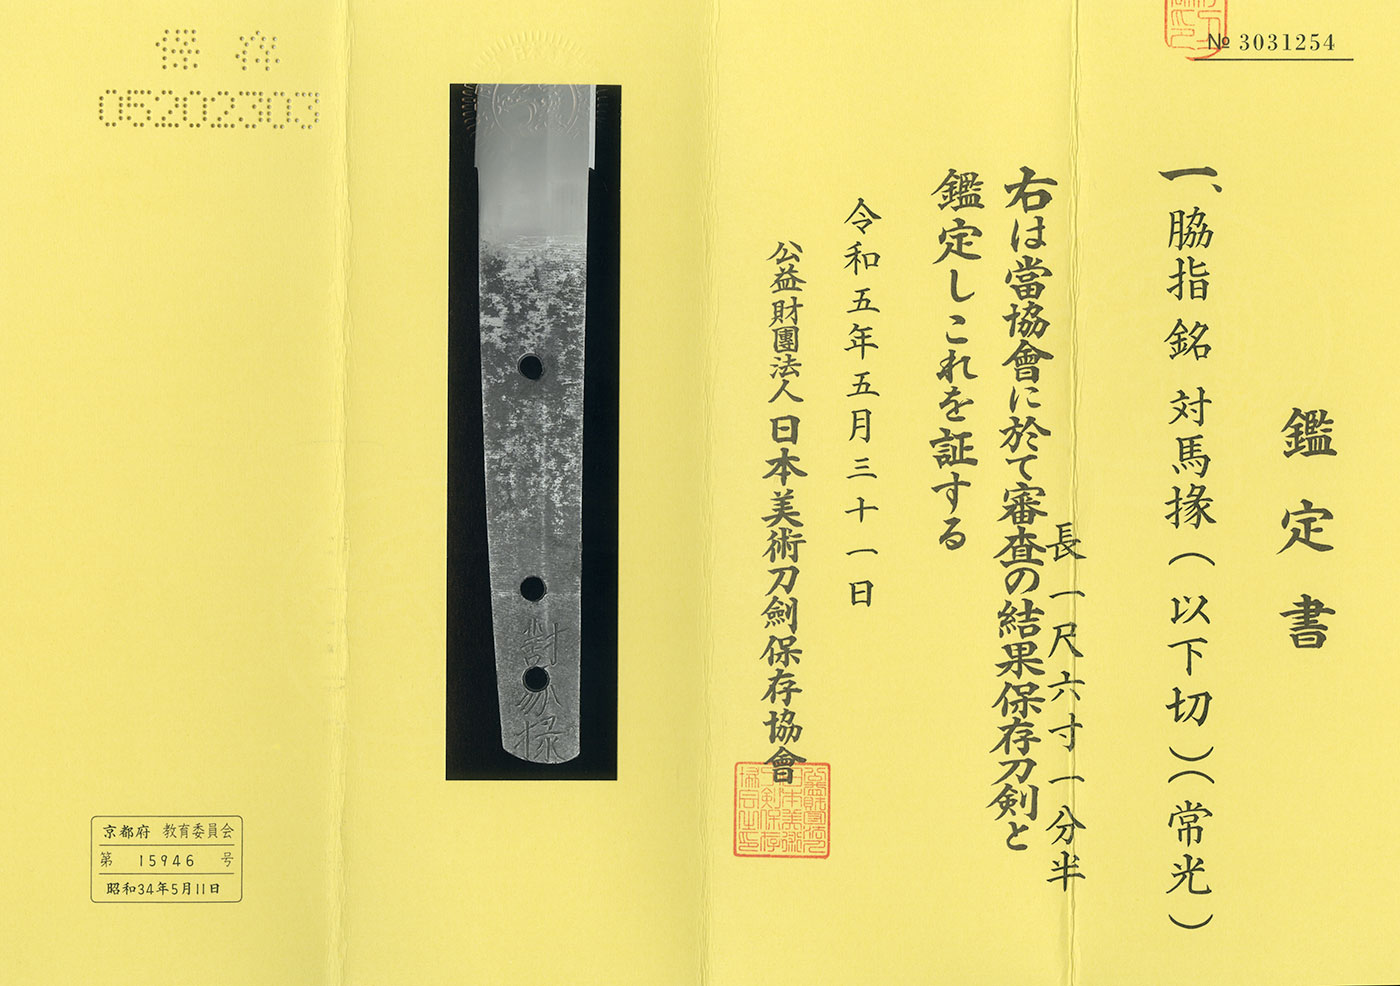 № 3031254
鑑定書
一、脇指 銘 対馬掾(以下切)(常光)
長一尺六寸一分半
右は當協會に於て審査の結果保存刀剣と
鑑定しこれを証する
令和五年五月三十一日
公益財團法人日本美術刀劍保存協會
對
掾
保存
05202303
京都府 教育委員会
第 15946 号
昭和34年5月11日